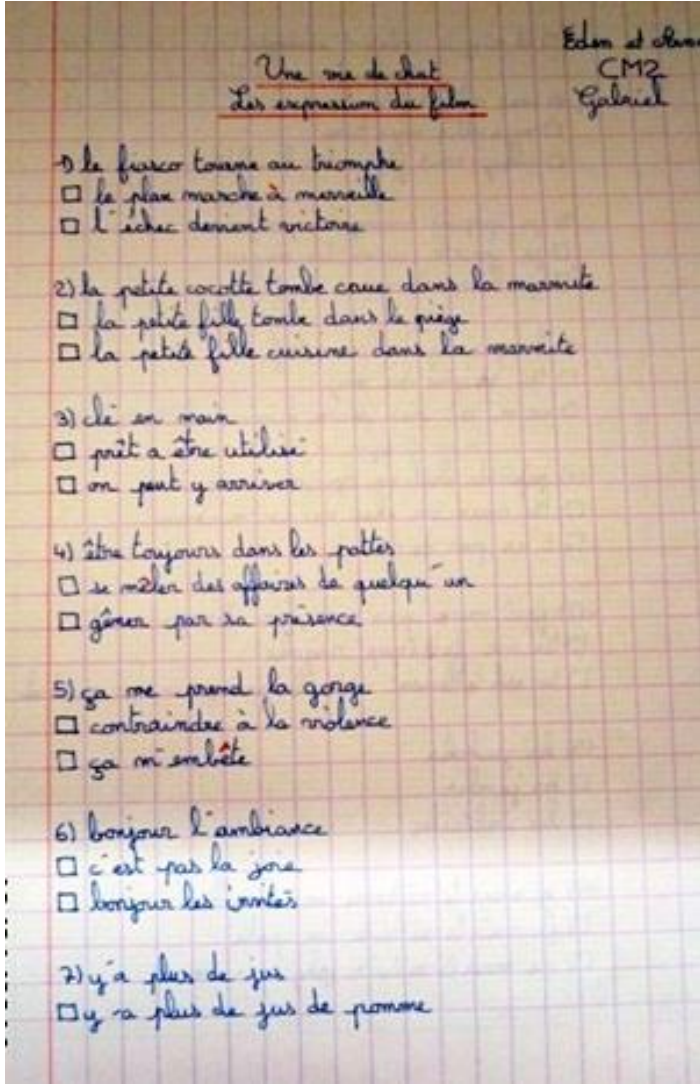 Eden et
Une vie de chat
CM2
Les expression du film
Gabriel
1) le fiasco tourne au triomphe
□ le plan marche à merveille
□ l'échec devient victoire
2) la petite cocotte tombe crue dans la marmite
□ la petite fille tombe dans le piège
□ la petite fille cuisine dans la marmite
3) clé en main
□ prêt a être utilisé
□ on peut y arriver
4) être toujours dans les pattes
□ se mêler des affaires de quelqu'un
□ gêner par sa présence
5) ça me prend la gorge
□ contraindre à la violence
□ ça m'embête
6) bonjour l'ambiance
□ c'est pas la joie
□ bonjour les invités
7) y'a plus de jus
□ y a plus de jus de pomme